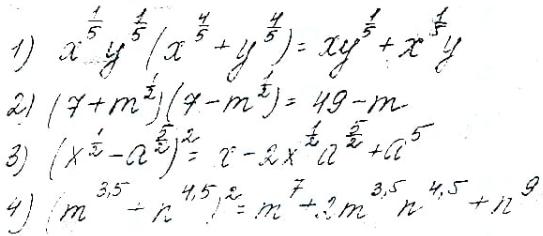 1) x^{1/5} y^{1/5} (x^{4/5} + y^{4/5}) = xy^{1/5} + x^{1/5}y
2) (7 + m^{1/2})(7 - m^{1/2}) = 49 - m
3) (x^{1/2} - a^{5/2})^2 = x - 2x^{1/2} a^{5/2} + a^5
4) (m^{3,5} + n^{4,5})^2 = m^7 + 2m^{3,5} n^{4,5} + n^9